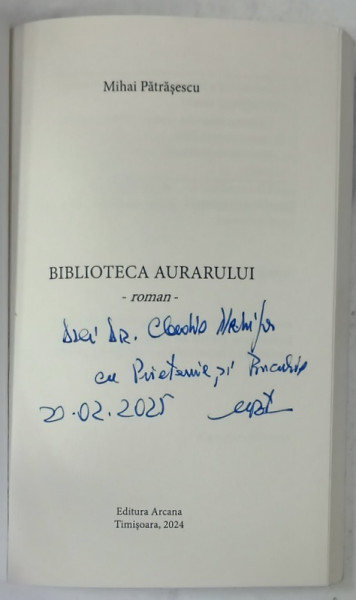 Mihai Pătrășescu
BIBLIOTECA AURARULUI
- roman -
Dr. Claudia
cu Prietenie și
20.02.2025
Editura Arcana
Timișoara, 2024